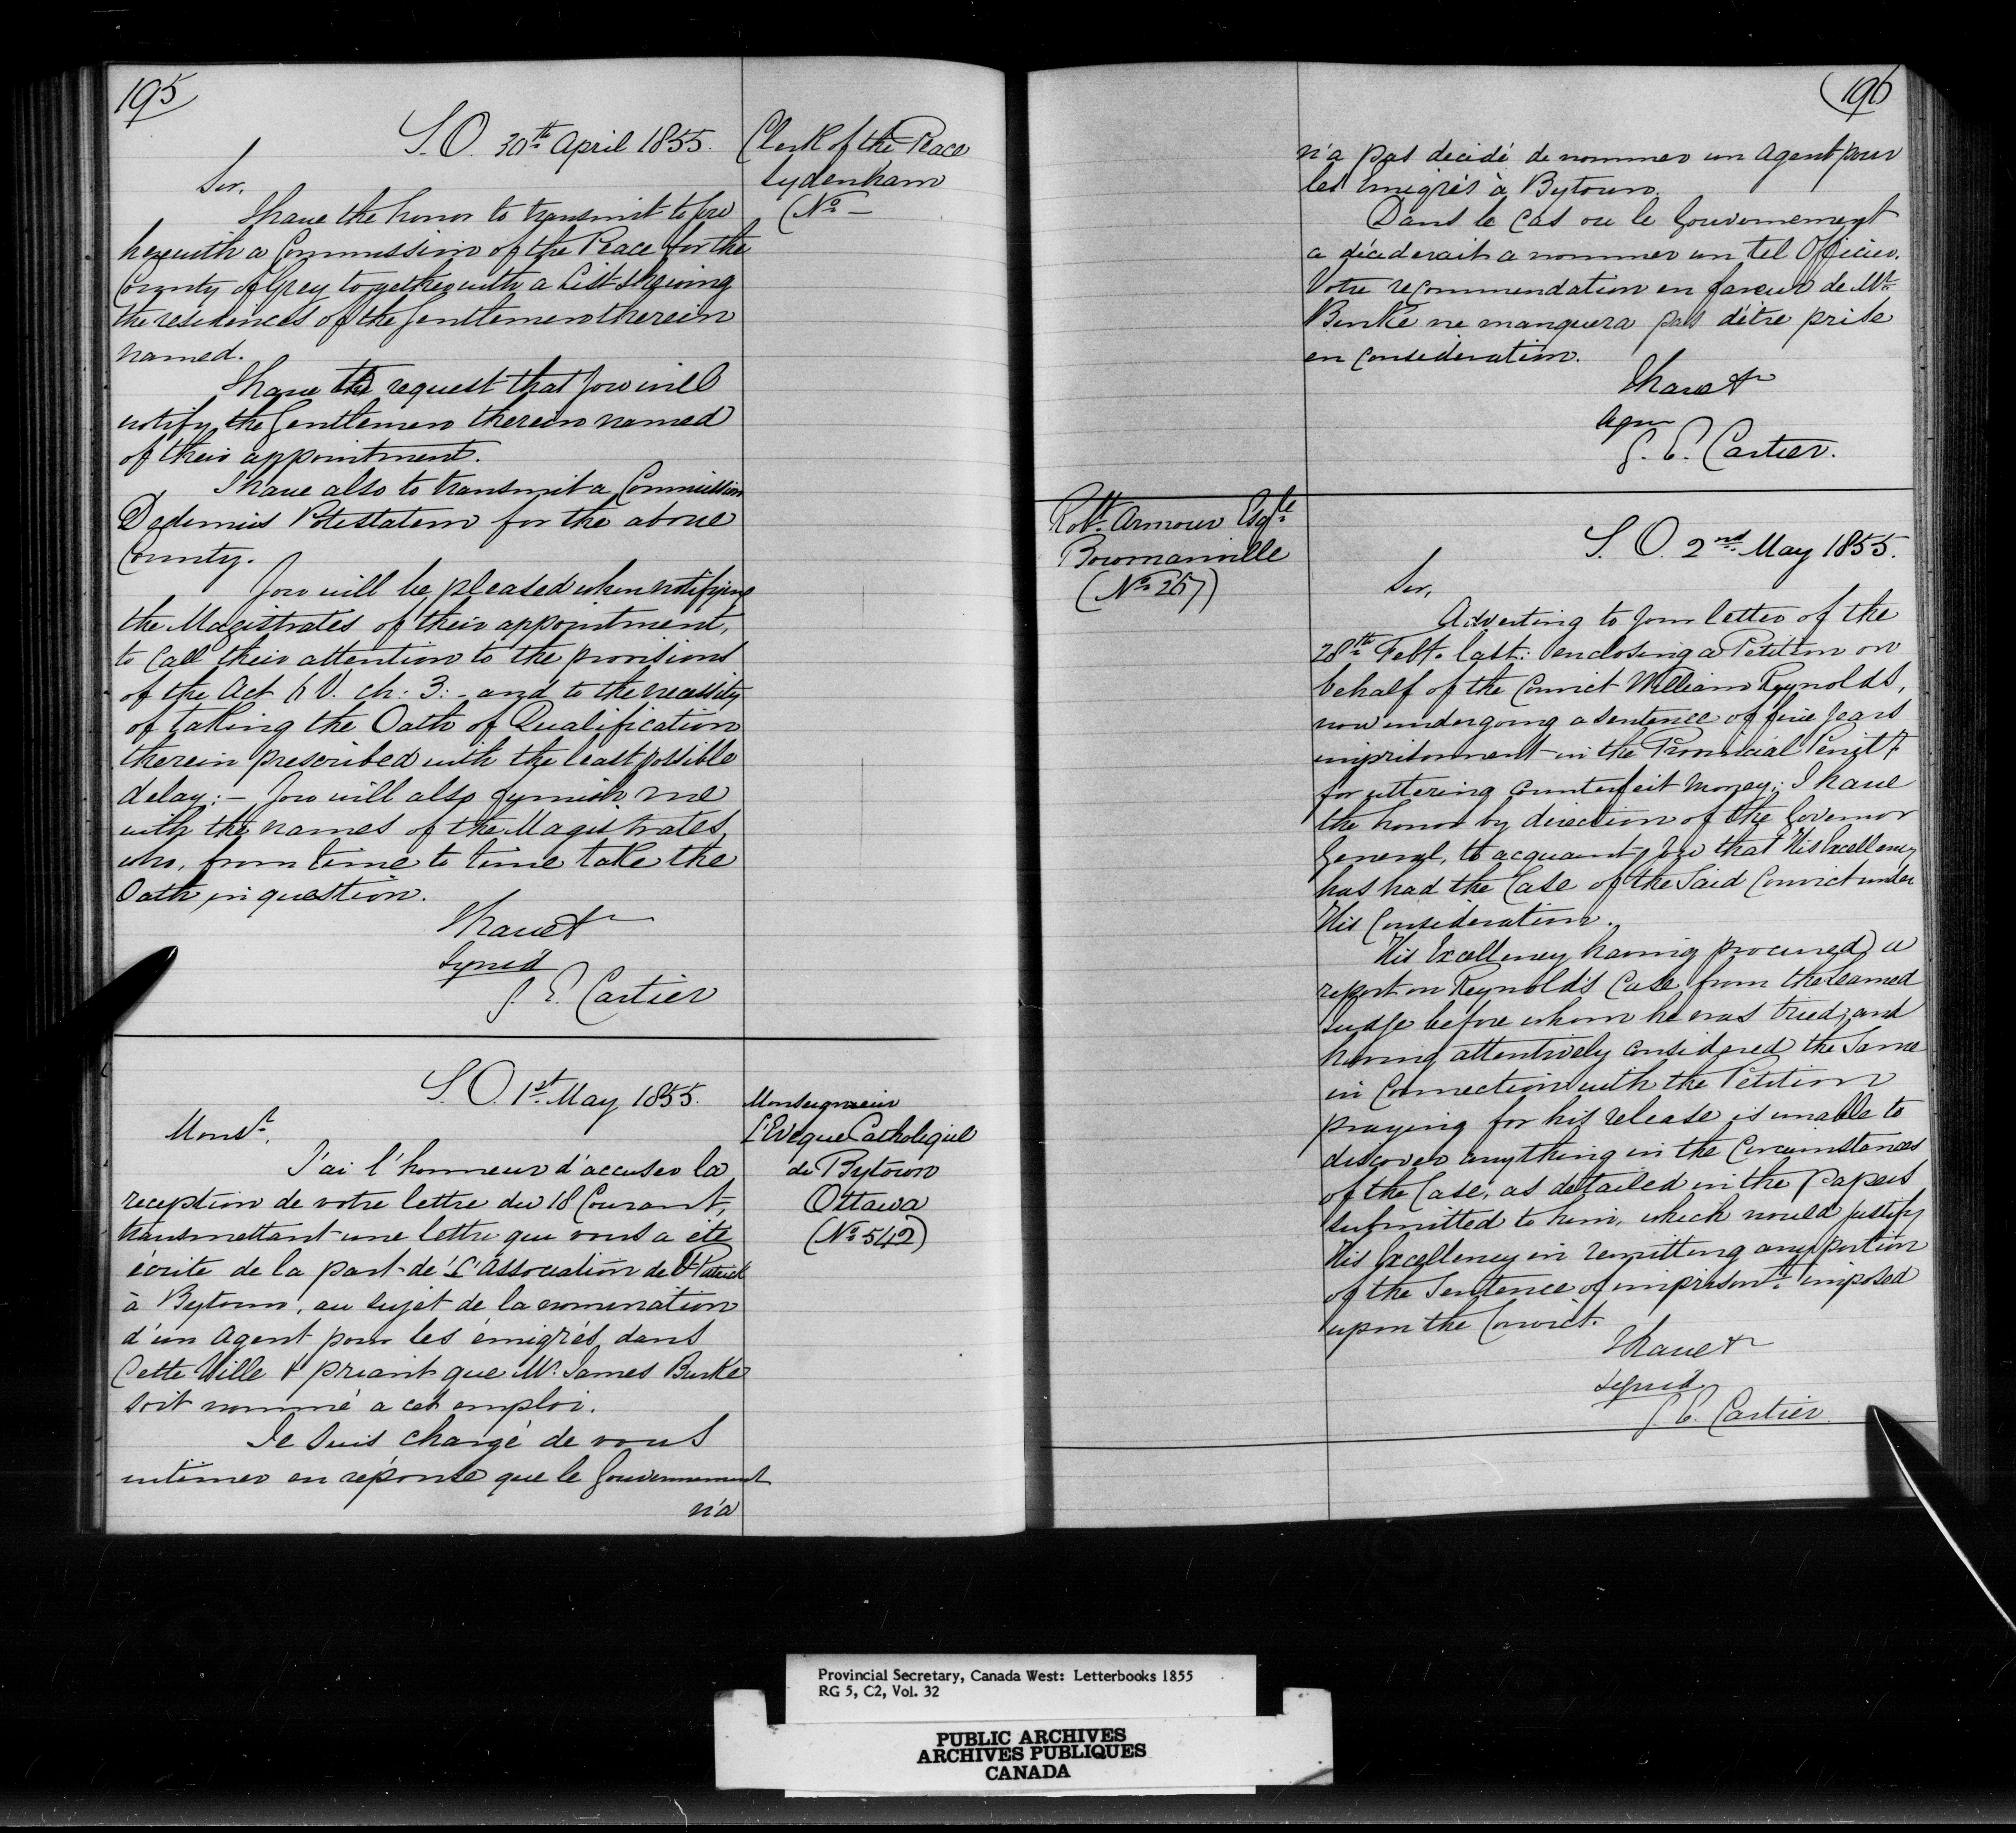 195
S.O. 30th April 1855.
Clerk of the Peace
Sydenham
(No. —
Sir,
I have the honor to transmit to you
herewith a Commission of the Peace for the
County of Grey together with a List shewing
the residences of the Gentlemen therein
named.
I have to request that you will
notify the Gentlemen therein named
of their appointment.
I have also to transmit a Commission
Dedimus Potestatem for the above
County.
You will be pleased when notifying
the Magistrates of their appointment,
to call their attention to the provisions
of the Act 6 V. ch: 3: - and to the necessity
of taking the Oath of Qualification
therein prescribed with the least possible
delay: - You will also furnish me
with the names of the Magistrates,
who, from time to time take the
Oath in question.
I have &c
Signed
G. E. Cartier
S.O. 1st May 1855.
Monseigneur
L'Eveque Catholique
de Bytown
Ottawa
(No. 542)
Monsr.
J'ai l'honneur d'accuser la
reception de votre lettre du 18 Courant,
transmettant une lettre que vous a été
écrite de la part de L'Association de St Patrick
à Bytown, au sujet de la nomination
d'un Agent pour les émigrés dans
Cette Ville & priant que Mr. James Burke
soit nommé a cet emploi.
Je suis chargé de vous
intimer en réponse que le Gouvernement
n'a
196
n'a pas decidé de nommer un Agent pour
les Emigrés à Bytown.
Dans le Cas ou le Gouvernement
a déciderait a nommer un tel Officier.
Votre recommendation en faveur de Mr.
Burke ne manquera pas d'être prise
en Consideration.
I have &c
G. E. Cartier.
Robt. Armour Esqre.
Bowmanville
(No. 257)
S.O. 2nd May 1855.
Sir,
Adverting to your letter of the
28th Feby. last: enclosing a Petition on
behalf of the Convict William Reynolds,
now undergoing a sentence of five years
imprisonment in the Provincial Penity
for uttering Counterfeit Money; I have
the honor by direction of the Governor
General, to acquaint you that His Excellency
has had the Case of the Said Convict under
His Consideration.
His Excellency having procured a
report on Reynold's Case, from the Learned
Judge before whom he was tried; and
having attentively considered the Same
in Connection with the Petition
praying for his release is unable to
discover anything in the Circumstances
of the Case, as detailed in the papers
submitted to him, which would justify
His Excellency in remitting any portion
of the Sentence of imprisont. imposed
upon the Convict.
I have &c
Signed
G. E. Cartier
Provincial Secretary, Canada West: Letterbooks 1855
RG 5, C2, Vol. 32
PUBLIC ARCHIVES
ARCHIVES PUBLIQUES
CANADA